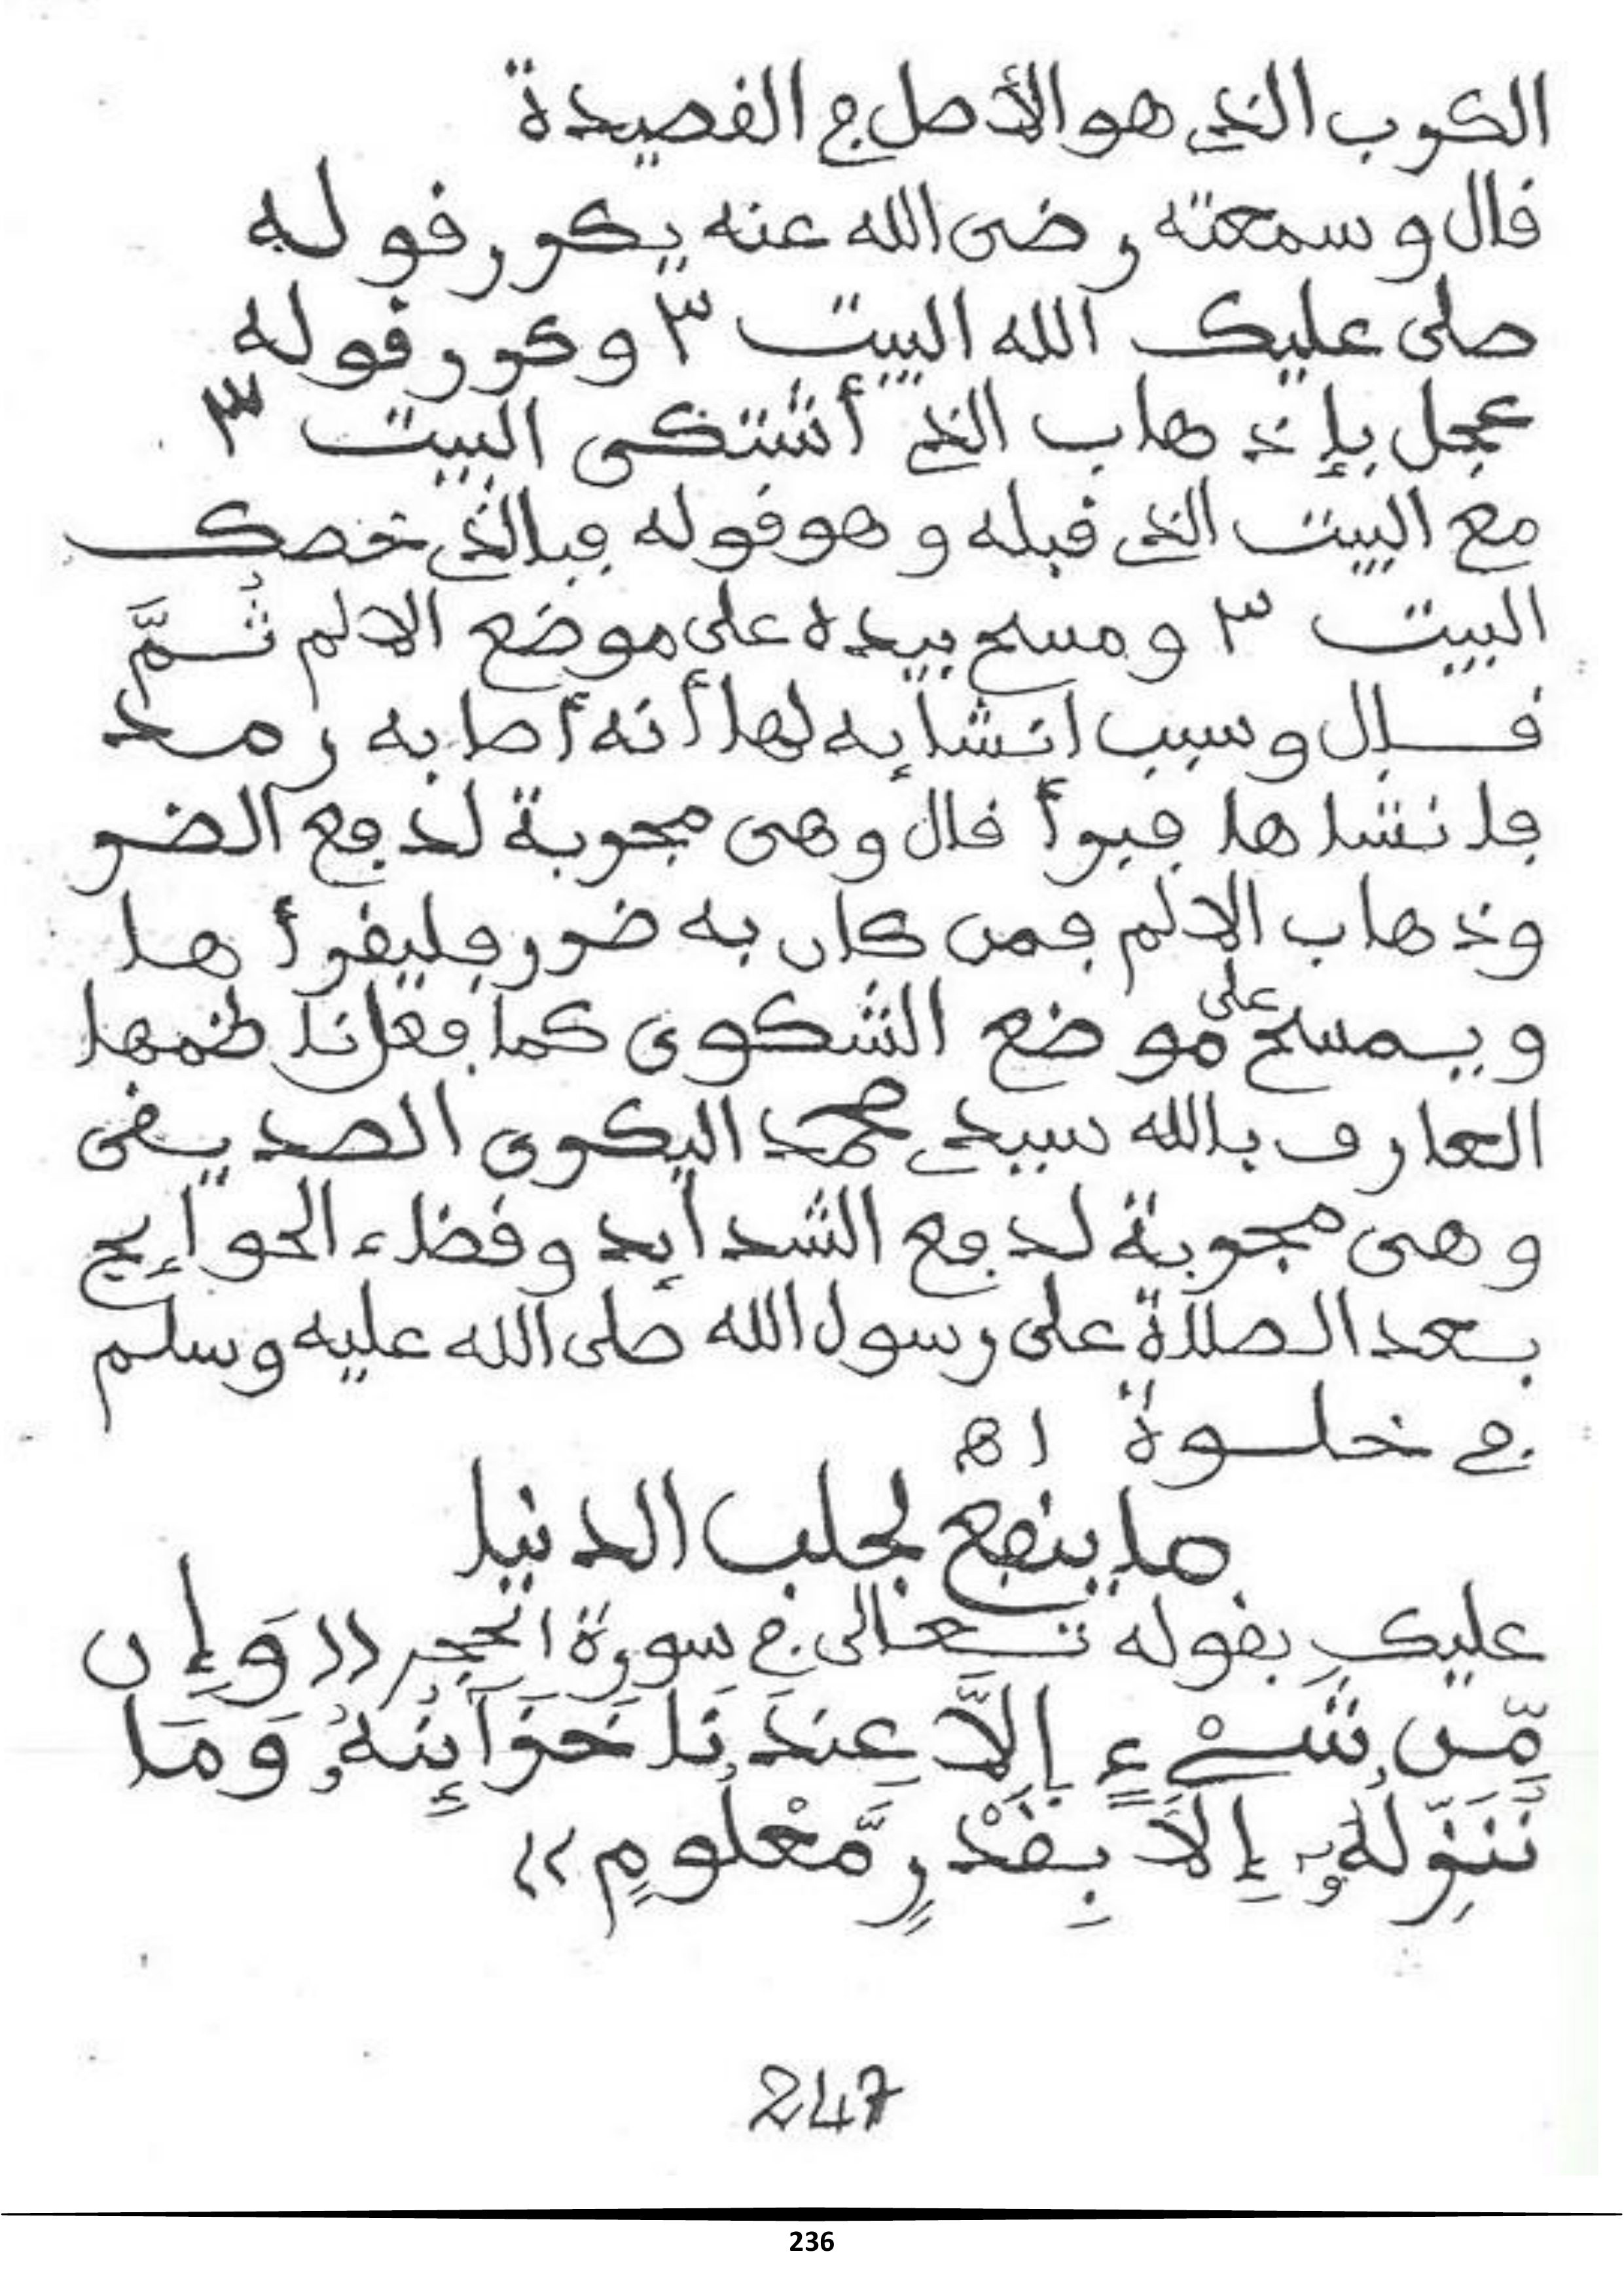 الكرب الذي هو الأصل في القصيدة
قال وسمعته رضى الله عنه يكرر قوله
صلى عليك الله البيت ٣ وكرر قوله
عجل بإذهاب الذي أشتكى البيت ٣
مع البيت الذي قبله وهو قوله فبالذي خصك
البيت ٣ ومسح بيده على موضع الالم ثُمَّ
قال وسبب انشايه لها أنه أصابه رمد
فانشاها فبرأ قال وهى مجربة لدفع الضر
وذهاب الالم فمن كان به ضرر فليقرأها
ويمسح على موضع الشكوى كما فعل ناظمها
العارف بالله سيدي محمد البكرى الصديقى
وهى مجربة لدفع الشدايد وقضاء الحوايج
بعد الصلاة على رسول الله صلى الله عليه وسلم
في خلوة اهـ
ما ينفع لجلب الدنيا
عليك بقوله تعالى في سورة الحجر ((وَإِن
مِّن شَىْءٍ إِلاَّ عِندَنَا خَزَآئِنُهُ وَمَا
نُنَزِّلُهُ إِلاَّ بِقَدْرٍ مَّعْلُومٍ))
247
236